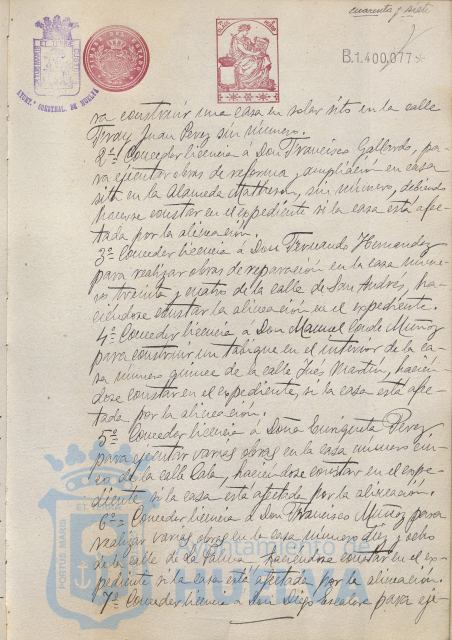 cuarenta y siete
B.1.400,077
AYUNTº CONSTNAL. DE HUELVA
ra construir una casa en solar sito en la calle
Fray Juan Perez sin número.
2º= Conceder licencia á Don Francisco Gallardo, pa-
ra ejecutar obras de reforma y ampliación en casa
sita en la Alameda Matheson, sin número, debiendo
hacerse constar en el expediente si la casa está afec-
tada por la alineación.
3º= Conceder licencia á Don Fernando Hernandez
para realizar obras de reparación en la casa núme-
ro treinta y cuatro de la calle de San Andrés, ha-
ciéndose constar la alineación en el expediente.
4º= Conceder licencia á Don Manuel Conde Muñoz
para construir un tabique en el interior de la ca-
sa número quince de la calle Ines Martin, hacién-
dose constar en el expediente, si la casa está afec-
tada por la alineación.
5º= Conceder licencia á Doña Enriqueta Perez
para ejecutar varias obras en la casa número cin-
co de la calle Cala, haciéndose constar en el expe-
diente si la casa está afectada por la alineación.
6º= Conceder licencia á Don Francisco Muñoz para
realizar varias obras en la casa número diez y ocho
de la calle de La Palma haciendose constar en el ex-
pediente si la casa está afectada por la alineación.
7º= Conceder licencia á Don Diego para eje-
Ayuntamiento de
HUELVA
PORTUS MARIS